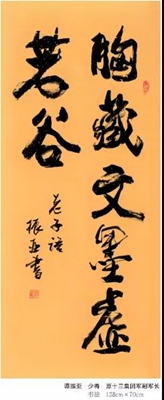 胸藏文墨虚
若谷
老子语
振亚书
谭振亚 少将 原十三集团军副军长
书法 138cm×70cm